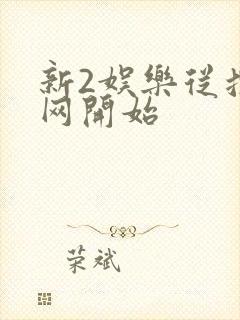 新2娛樂從
网開始
荣斌